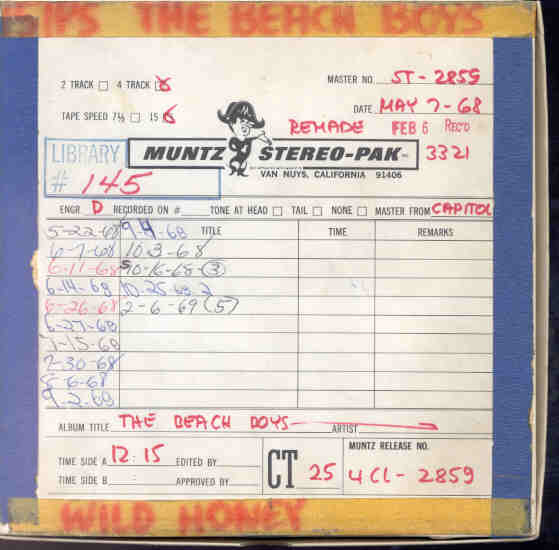 IPS THE BEACH BOYS
2 TRACK 4 TRACK
MASTER NO. ST-2859
TAPE SPEED 7½ 15
DATE MAY 7-68
REMADE FEB 6 REC'D
LIBRARY MUNTZ STEREO-PAK INC. 3321
# 145
VAN NUYS, CALIFORNIA 91406
ENGR D RECORDED ON # TONE AT HEAD TAIL NONE MASTER FROM CAPITOL
TITLE TIME REMARKS
5-22-68 9-4-68
6-7-68 10-3-68
6-11-68 10-16-68 (3)
6-14-68 10-25-68 2
6-26-68 2-6-69 (5)
6-27-68
7-15-68
7-30-68
8-6-68
9-2-68
ALBUM TITLE THE BEACH BOYS ARTIST
TIME SIDE A 12:15 EDITED BY
TIME SIDE B : APPROVED BY
CT 25
MUNTZ RELEASE NO.
4CL-2859
WILD HONEY